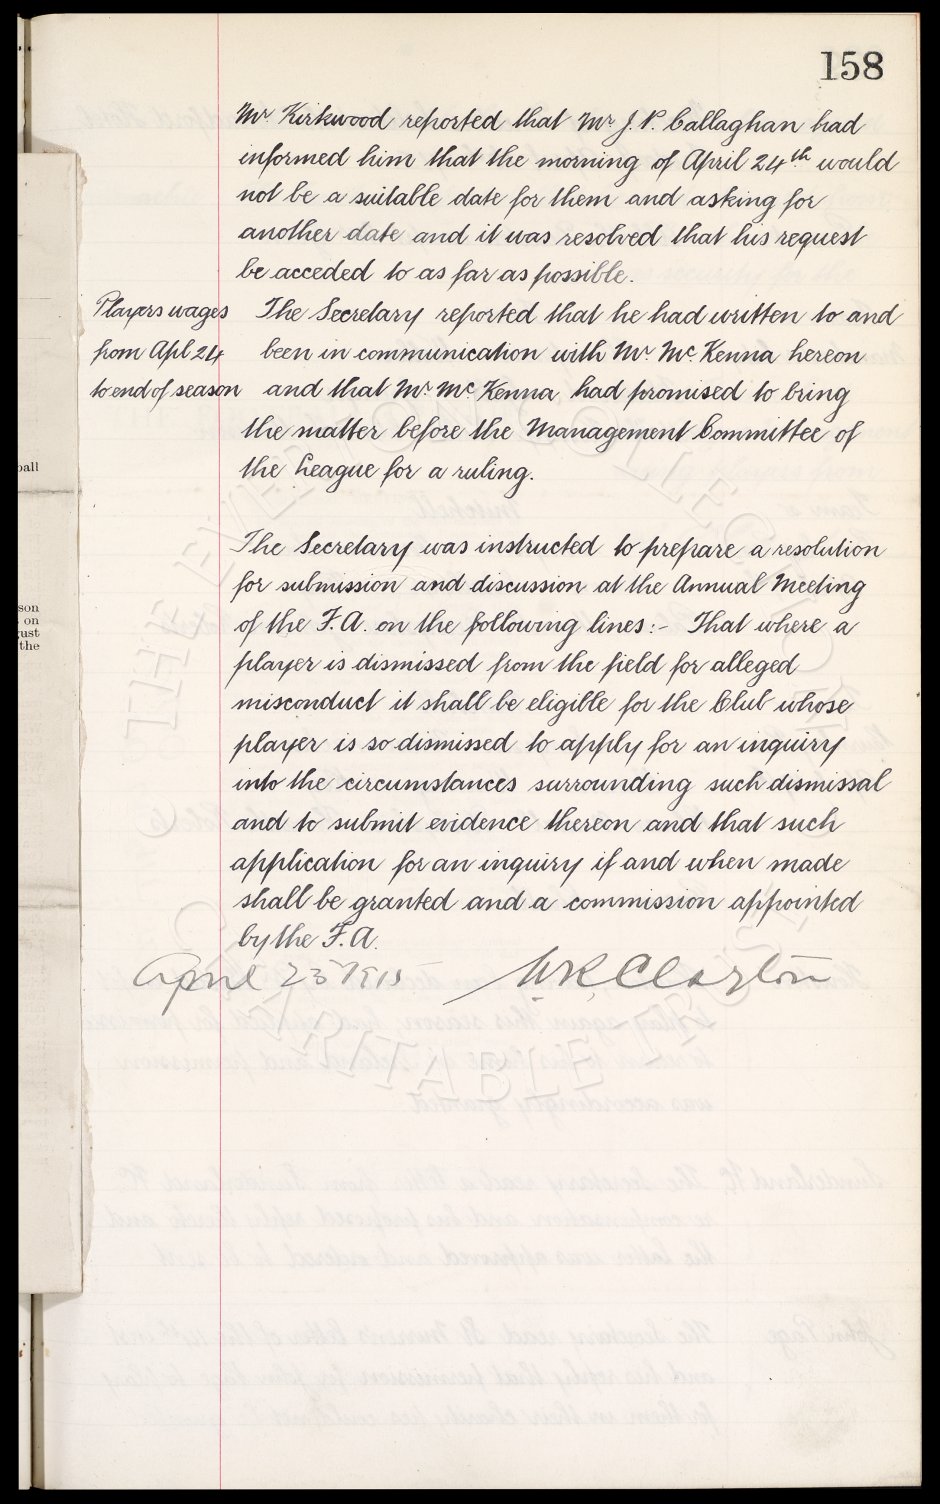 158
Mr. Kirkwood reported that Mr J. P. Callaghan had
informed him that the morning of April 24th would
not be a suitable date for them and asking for
another date and it was resolved that his request
be acceded to as far as possible.
Players wages
from Apl 24
to end of season
The Secretary reported that he had written to and
been in communication with Mr. McKenna hereon
and that Mr. McKenna had promised to bring
the matter before the Management Committee of
the League for a ruling.
The Secretary was instructed to prepare a resolution
for submission and discussion at the Annual Meeting
of the F.A. on the following lines:- That where a
player is dismissed from the field for alleged
misconduct it shall be eligible for the Club whose
player is so dismissed to apply for an inquiry
into the circumstances surrounding such dismissal
and to submit evidence thereon and that such
application for an inquiry if and when made
shall be granted and a commission appointed
by the F.A.
April 23 1915 W R Clayton
ball
son
on
gust
the
THE EVERTON COLLECTION
CHARITABLE TRUST